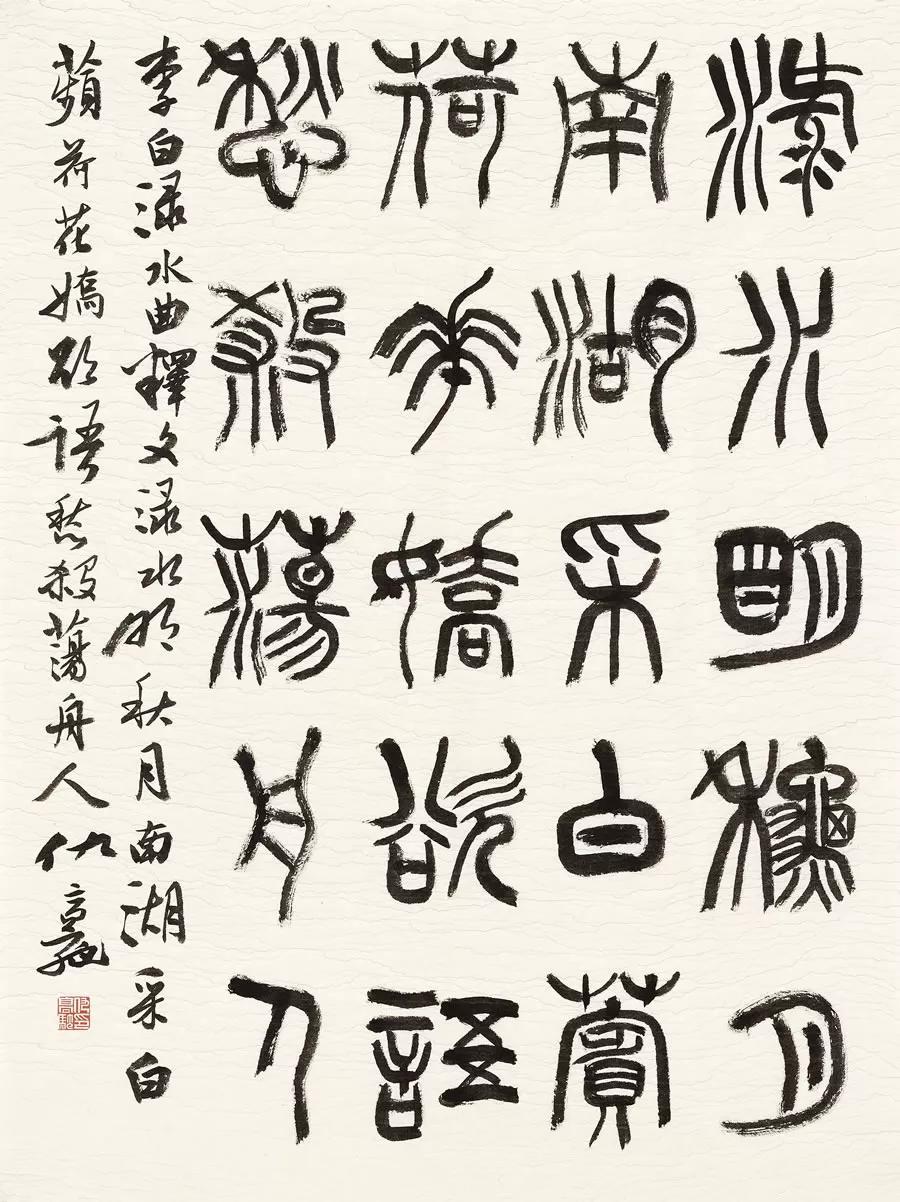 渌水明龝月
南湖采白薲
荷花嬌欲語
愁殺蕩舟人
李白渌水曲釋文渌水明秋月南湖采白
蘋荷花嬌欲語愁殺蕩舟人仇高馳
仇印高馳